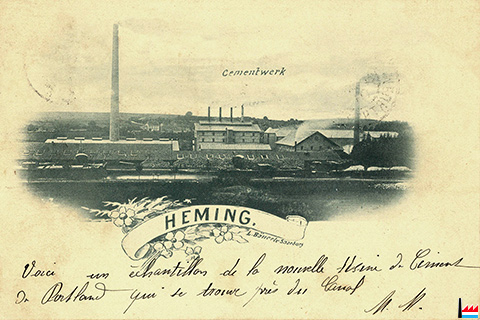 Cementwerk
HEMING.
Voici un échantillon de la nouvelle Usine de Ciment
de Portland qui se trouve près du Canal
M. M.